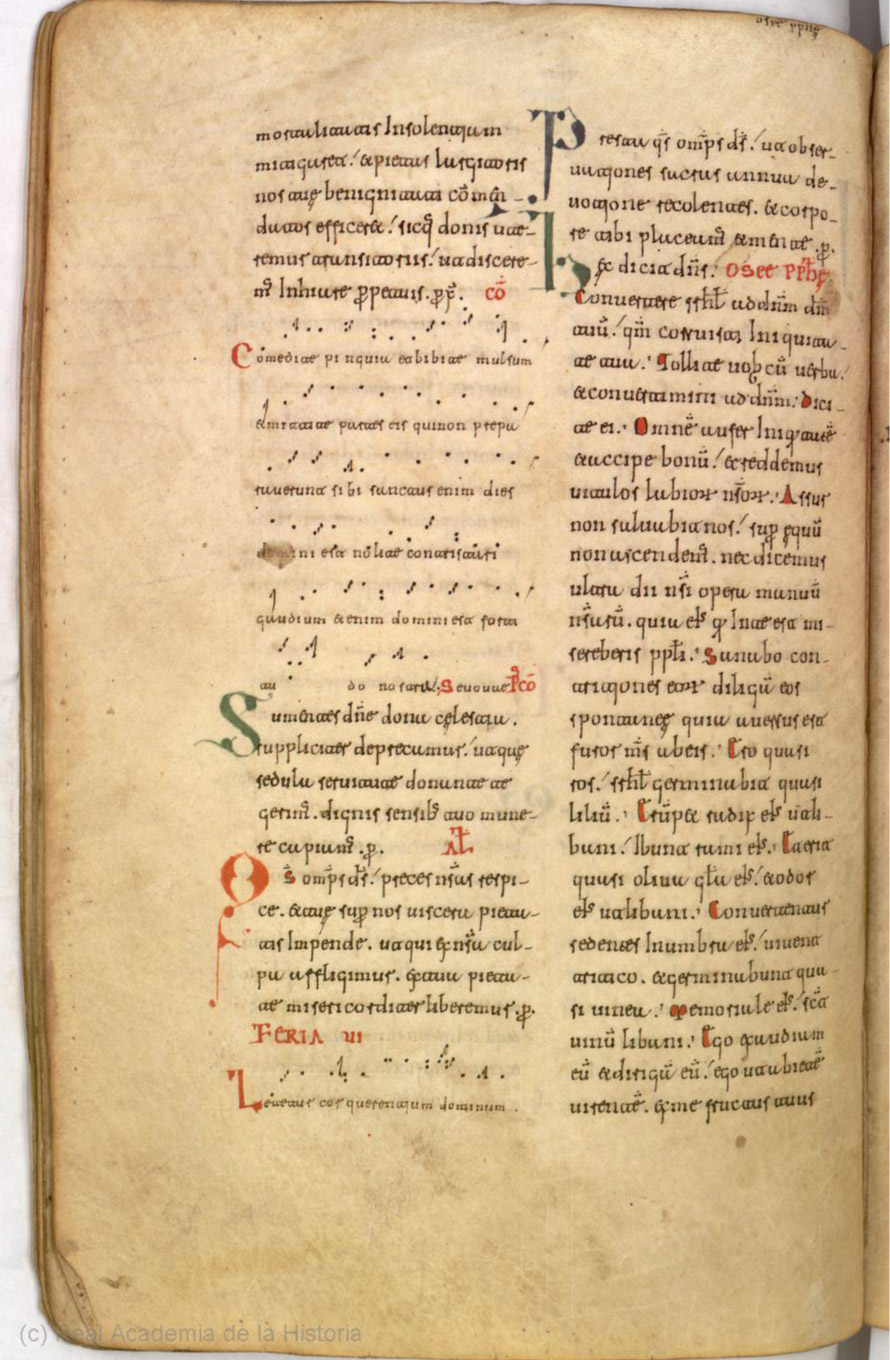 mortalitatis Insolentium
mitigaret! & pietatis largitoris
nos atq̨ benignitati cōmēn-
datos efficeret! sicq̨ donis ute-
remur transitoriis! ut discere-
m̄ Inhiare ꝑpetuis. ꝑ. cō
Comedite pinguia et bibite mulsum
& mittite partes eis qui non prepa
raverunt sibi sanctus enim dies
domini est nolite contristari
gaudium etenim domini est forti
tu do nostra. Seuouae Pcō
Sumentes dn̄e dona cęlestia.
suppliciter deprecamur! ut que
sedula servitute donante te
gerim̄. dignis sensib; tuo mune-
re capiam̄. ꝑ. Al̄
Qs̄ omp̄s ds̄! preces nr̄as respi-
ce. & tuę suꝑ nos viscera pieta-
tis Impende. ut qui ex nr̄a cul-
pa affligimur. ex tua pieta-
te misericorditer liberemur. ꝑ.
FERIA VI
Letetur cor querentium dominum.
Presta qs̄ omp̄s ds̄! ut obser-
vationes sacras annua de-
votione recolentes. & corpo-
re tibi placeam̄ & mente. ꝑ.
Hęc dicit dn̄s. OSEE PPHĘ
Convertere isrl̄ ad dn̄m dm̄
tuū! qm̄ corruisti In iniquita-
te tua. Tollite vobcū verba!
& convertimini ad dn̄m. Dici-
te ei. Omnē aufer Iniquitatē
& accipe bonū! & reddemus
vitulos labiorȝ nr̄orȝ. Assur
non salvabit nos! suꝑ equū
non ascendem̄. nec dicemus
ultra dii nr̄i opera manuū
nr̄arū. quia ei; q̄ In te est mi-
sereberis ppl̄i. Sanabo con-
tritiones eorȝ diligā eos
spontanee quia aversus est
furor m̄s ab eis. Ero quasi
ros! isrl̄ germinabit quasi
liliū. Erūpet radix ei; ut li-
bani! Ibunt rami ei;. Et erit
quasi oliva gl̄a ei;! & odor
ei; ut libani. Convertentur
sedentes In umbra ei;! vivent
tritico. & germinabunt qua-
si vinea. Memoriale ei;! sicut
vinū libani. Ego exaudiam
eū & dirigā eū! ego ut abietē
virentē. ex me fructus tuus
(c) Real Academia de la Historia